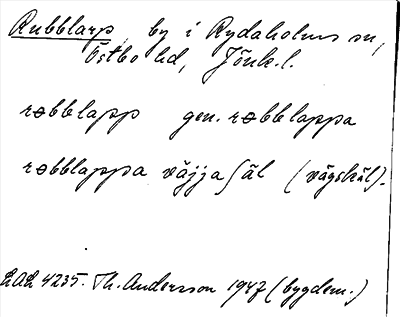 Rubblarp, by i Rydaholms sn,
Östbo hd, Jönk.l.
røbblapp gen. røbblappa
røbblappa väjjaʃäl (vägskäl).
LAL 4235. Th. Andersson 1947 (bygdem.)